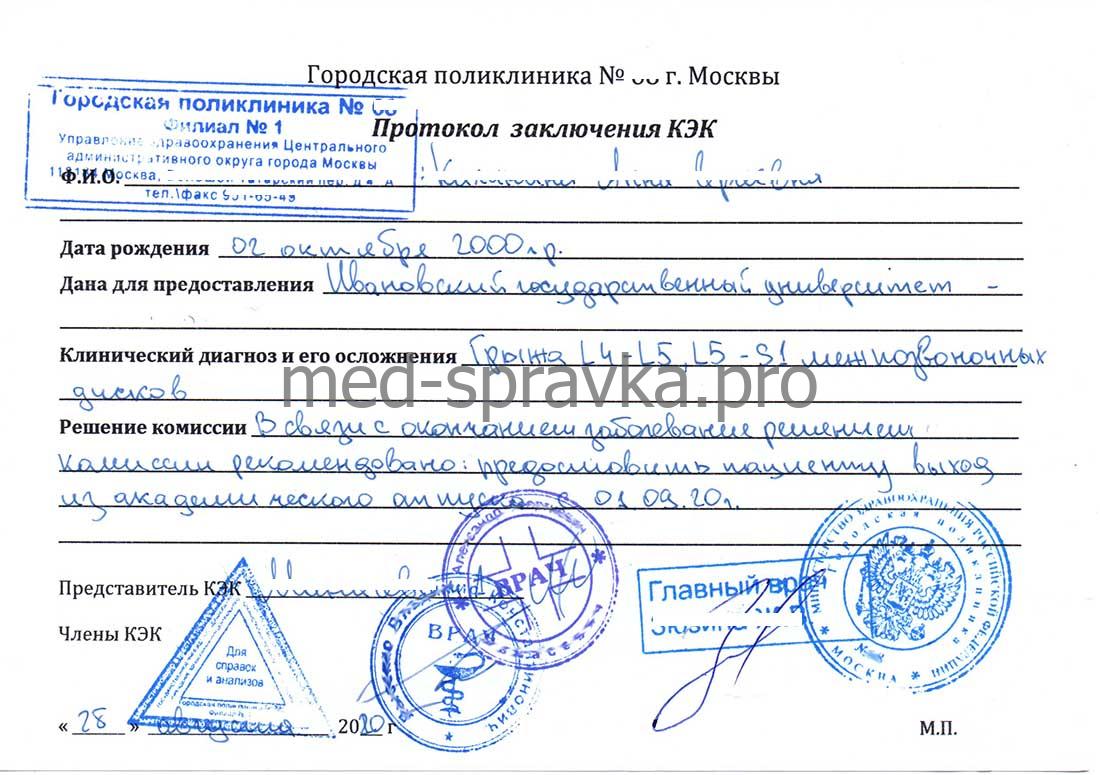 Городская поликлиника № г. Москвы
Городская поликлиника №
Филиал № 1
Управление здравоохранения Центрального
административного округа города Москвы
Москва,
тел.\факс 951-65-49
Протокол заключения КЭК
Ф.И.О.
Дата рождения 02 октября 2000 г.р.
Дана для предоставления Ивановский государственный университет -
Клинический диагноз и его осложнения Грыжа L4-L5, L5-S1 межпозвоночных
дисков
med-spravka.pro
Решение комиссии В связи с окончанием заболевание решением
комиссии рекомендовано: предоставить пациенту выход
из академического отпуска с 01.09.20г.
Представитель КЭК
Члены КЭК
Для
справок
и анализов
ВРАЧ
ВРАЧ
Главный врач
МИНИСТЕРСТВО ЗДРАВООХРАНЕНИЯ РОССИЙСКОЙ ФЕДЕРАЦИИ
Городская поликлиника
МОСКВА
« 28 » августа 2020 г
М.П.